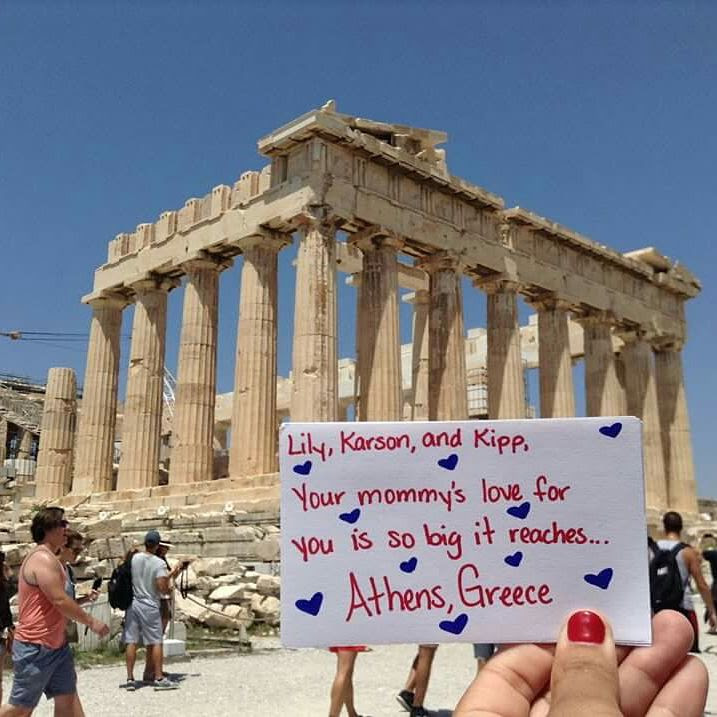 Lily, Karson, and Kipp,
Your mommy's love for
you is so big it reaches...
Athens, Greece